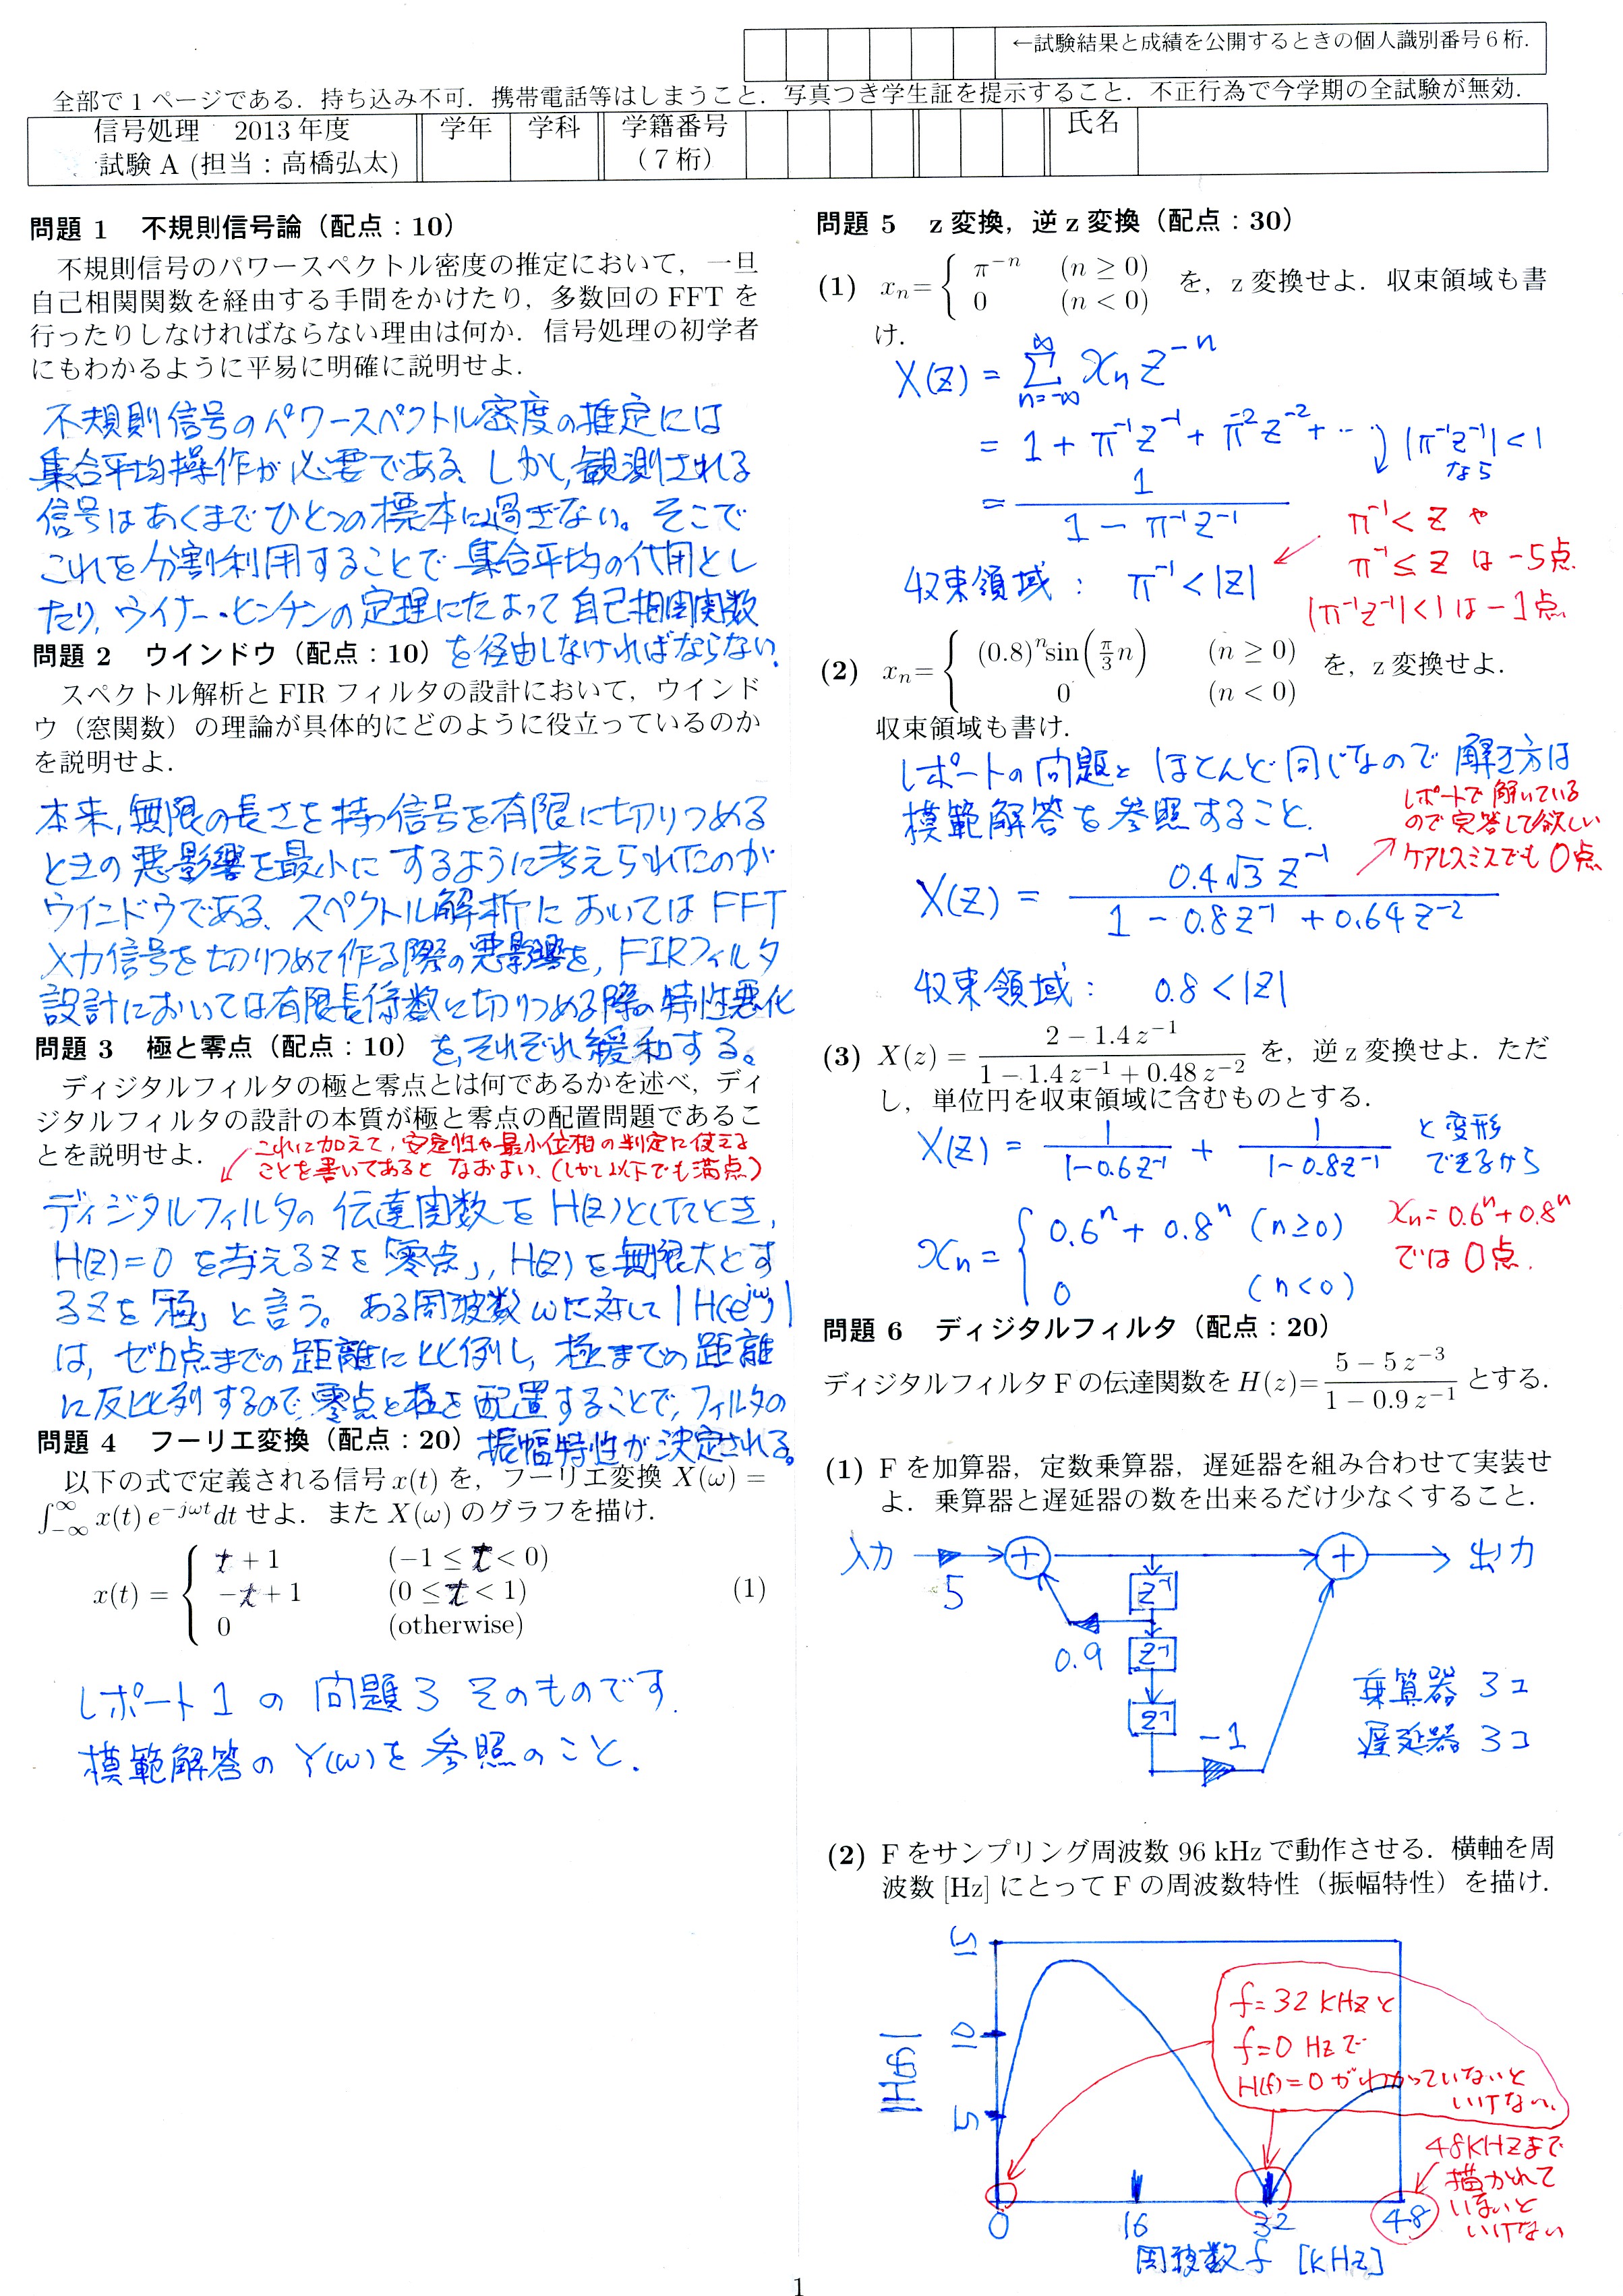 ←試験結果と成績を公開するときの個人識別番号6桁.
全部で1ページである. 持ち込み不可. 携帯電話等はしまうこと. 写真つき学生証を提示すること. 不正行為で今学期の全試験が無効.
信号処理 2013年度
試験A (担当:高橋弘太)
学年
学科
学籍番号
(7桁)
氏名
問題 1 不規則信号論(配点:10)
不規則信号のパワースペクトル密度の推定において, 一旦
自己相関関数を経由する手間をかけたり, 多数回の FFT を
行ったりしなければならない理由は何か. 信号処理の初学者
にもわかるように平易に明確に説明せよ.
不規則信号のパワースペクトル密度の推定には
集合平均操作が必要である. しかし, 観測される
信号はあくまでひとつの標本に過ぎない。そこで
これを分割利用することで集合平均の代用とし
たり, ウイナー・ヒンチンの定理にたよって自己相関関数
を経由しなければならない.
問題 2 ウインドウ(配点:10)
スペクトル解析と FIR フィルタの設計において, ウインド
ウ(窓関数)の理論が具体的にどのように役立っているのか
を説明せよ.
本来, 無限の長さを持つ信号を有限に切りつめる
ときの悪影響を最小にするように考えられたのが
ウインドウである. スペクトル解析においてはFFT
入力信号を切りつめて作る際の悪影響を, FIRフィルタ
設計においては有限長係数に切りつめる際の特性悪化
を,それぞれ緩和する。
問題 3 極と零点(配点:10)
ディジタルフィルタの極と零点とは何であるかを述べ, ディ
ジタルフィルタの設計の本質が極と零点の配置問題であるこ
とを説明せよ.
これに加えて, 安定性や最小位相の判定に使える
ことを書いてあるとなおよい. (しかし以下でも満点)
ディジタルフィルタの伝達関数をH(z)としたとき,
H(z)=0を与えるzを「零点」, H(z)を無限大とす
るzを「極」と言う。ある周波数ωに対して|H(e^{jω})|
は, ゼロ点までの距離に比例し, 極までの距離
に反比列するので, 零点と極を配置することで, フィルタの
振幅特性が決定される。
問題 4 フーリエ変換(配点:20)
以下の式で定義される信号 x(t) を, フーリエ変換 X(ω) =
∫_{-∞}^{∞} x(t) e^{-jωt}dt せよ. また X(ω) のグラフを描け.
x(t) = { t + 1 (−1 ≤ t < 0)
−t + 1 (0 ≤ t < 1)
0 (otherwise)
(1)
レポート1の問題3そのものです.
模範解答のY(ω)を参照のこと.
問題 5 z変換, 逆z変換(配点:30)
(1) x_n = { π^{-n} (n ≥ 0)
0 (n < 0)
を, z変換せよ. 収束領域も書
け.
X(z) = Σ_{n=-∞}^{∞} x_n z^{-n}
= 1 + π^{-1}z^{-1} + π^{-2}z^{-2} + … |π^{-1}z^{-1}| < 1 なら
= 1 / (1 − π^{-1}z^{-1})
収束領域: π^{-1} < |z|
π^{-1} < z や
π^{-1} ≤ z は −5点.
|π^{-1}z^{-1}| < 1 は −1点.
(2) x_n = { (0.8)^n sin(π/3 n) (n ≥ 0)
0 (n < 0)
を, z変換せよ.
収束領域も書け.
レポートの問題とほとんど同じなので解き方は
模範解答を参照すること.
レポートで解いている
ので完答して欲しい
ケアレスミスでも0点
X(z) = 0.4√3 z^{-1} / (1 − 0.8z^{-1} + 0.64z^{-2})
収束領域: 0.8 < |z|
(3) X(z) = (2 − 1.4 z^{-1}) / (1 − 1.4 z^{-1} + 0.48 z^{-2}) を, 逆z変換せよ. ただ
し, 単位円を収束領域に含むものとする.
X(z) = 1/(1−0.6z^{-1}) + 1/(1−0.8z^{-1}) と変形
できるから
x_n = { 0.6^n + 0.8^n (n≥0)
0 (n<0)
x_n = 0.6^n + 0.8^n
では0点.
問題 6 ディジタルフィルタ(配点:20)
ディジタルフィルタ F の伝達関数を H(z) = (5 − 5 z^{-3}) / (1 − 0.9 z^{-1}) とする.
(1) F を加算器, 定数乗算器, 遅延器を組み合わせて実装せ
よ. 乗算器と遅延器の数を出来るだけ少なくすること.
入力
5
+
+
出力
z^{-1}
0.9
z^{-1}
z^{-1}
−1
乗算器 3コ
遅延器 3コ
(2) F をサンプリング周波数 96 kHz で動作させる. 横軸を周
波数 [Hz] にとって F の周波数特性(振幅特性)を描け.
15
10
5
|H(f)|
f=32kHzと
f=0Hzで
H(f)=0がわかっていないと
いけない.
48kHzまで
描かれて
いないと
いけない
0
16
32
48
周波数f [kHz]
1